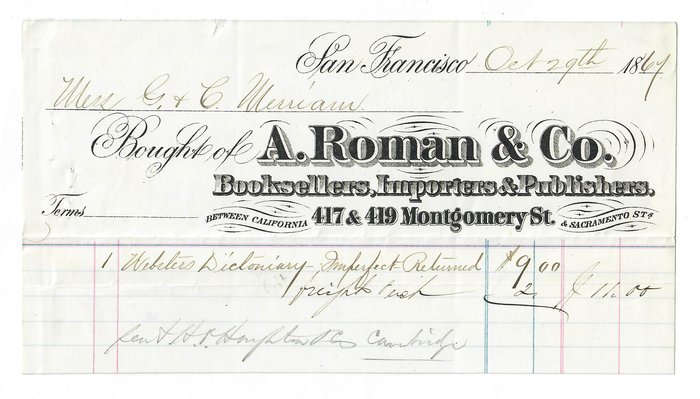 San Francisco Oct 29th 1867
Mess G. & C. Merriam
Bought of A. Roman & Co.
Booksellers, Importers & Publishers.
Terms BETWEEN CALIFORNIA 417 & 419 Montgomery St. & SACRAMENTO STS
1 Websters Dictoniary Imperfect Returned $9 00
freight & 2. $11.00
sent H. O. Houghton & Co Cambridge